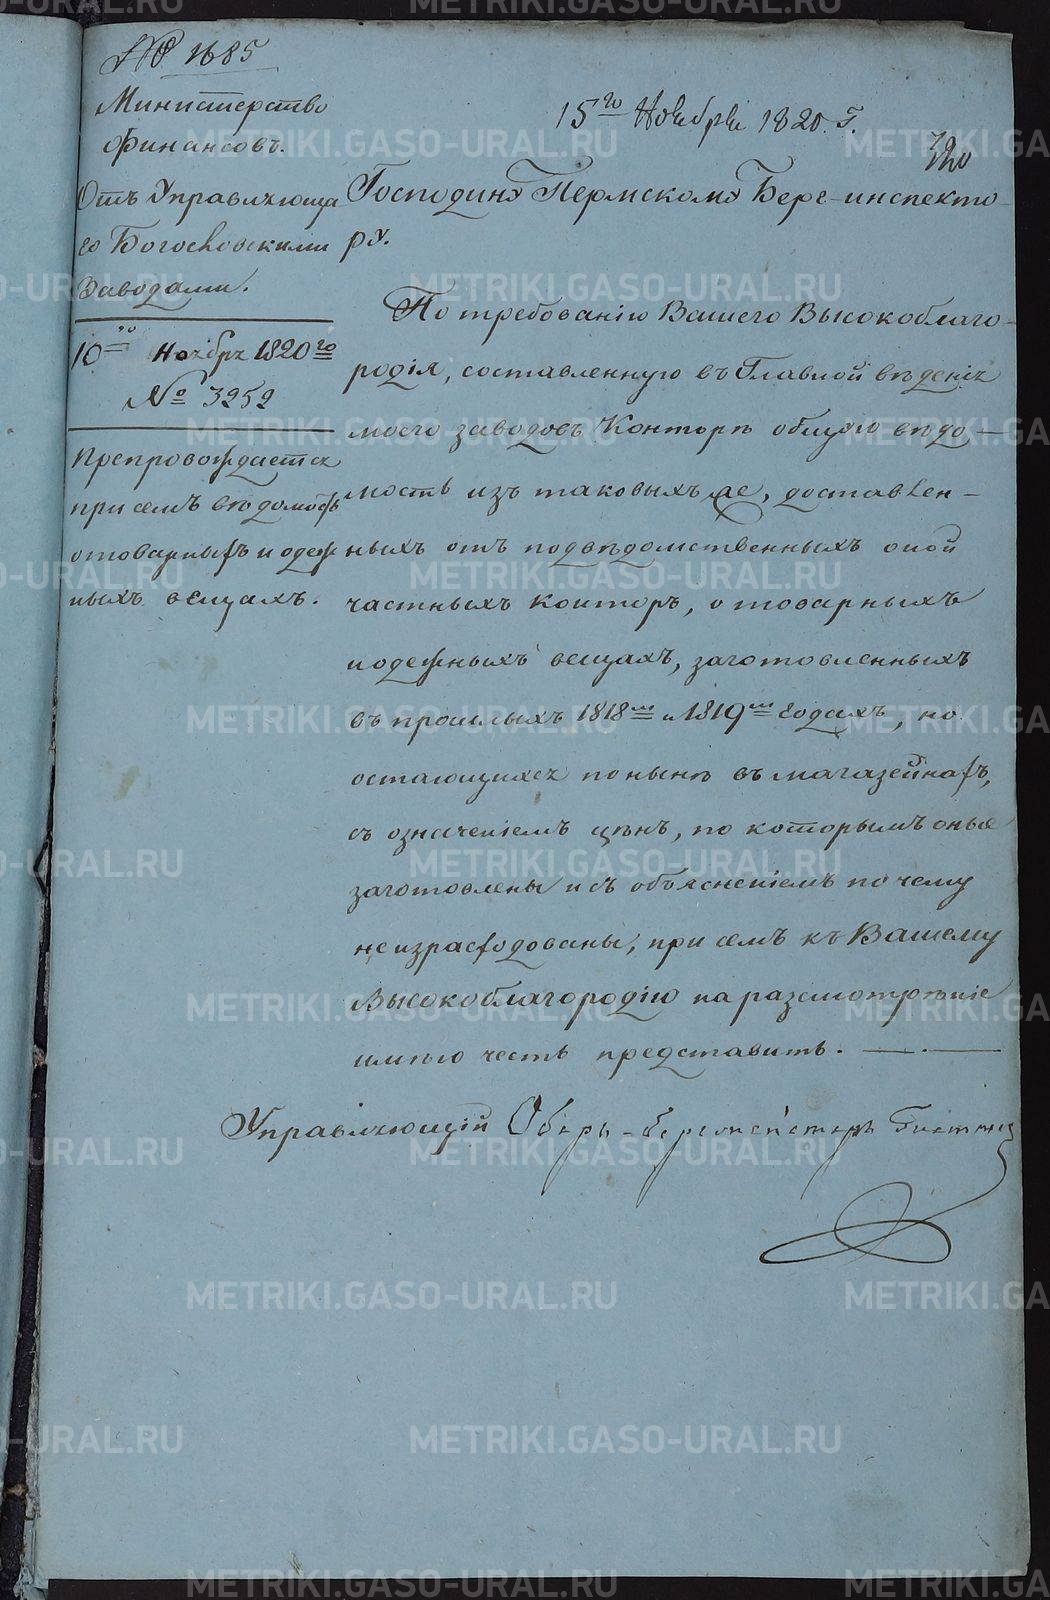 № 1685
Министерство
Финансовъ.
Отъ Управляюща
го Богословскими
Заводами.
10го Ноября 1820го
№ 3252
Препровождается
при семъ ведомость
о товарныхъ и одеж
ныхъ вещахъ.
15го Ноября 1820. Г.
Господину Пермскому Берг-инспекто-
ру.
По требованію Вашего Высокоблаго-
родія, составленную въ Главной въденія
моего заводовъ Конторѣ общую ведо-
мость изъ таковыхъ же, доставлен-
ныхъ отъ подвѣдомственныхъ оной
частныхъ конторъ, о товарныхъ
и одежныхъ вещахъ, заготовленныхъ
въ прошлыхъ 1818мъ и 1819мъ годахъ, но
остающихся понынѣ въ магазейнахъ,
съ означеніемъ цѣнъ, по которымъ оные
заготовлены и съ объясненіемъ почему
не израсходованы, при семъ къ Вашему
Высокоблагородію на разсмотрѣніе
имѣю честь представить.
Управляющій Оберъ-бергмейстеръ
METRIKI.GASO-URAL.RU